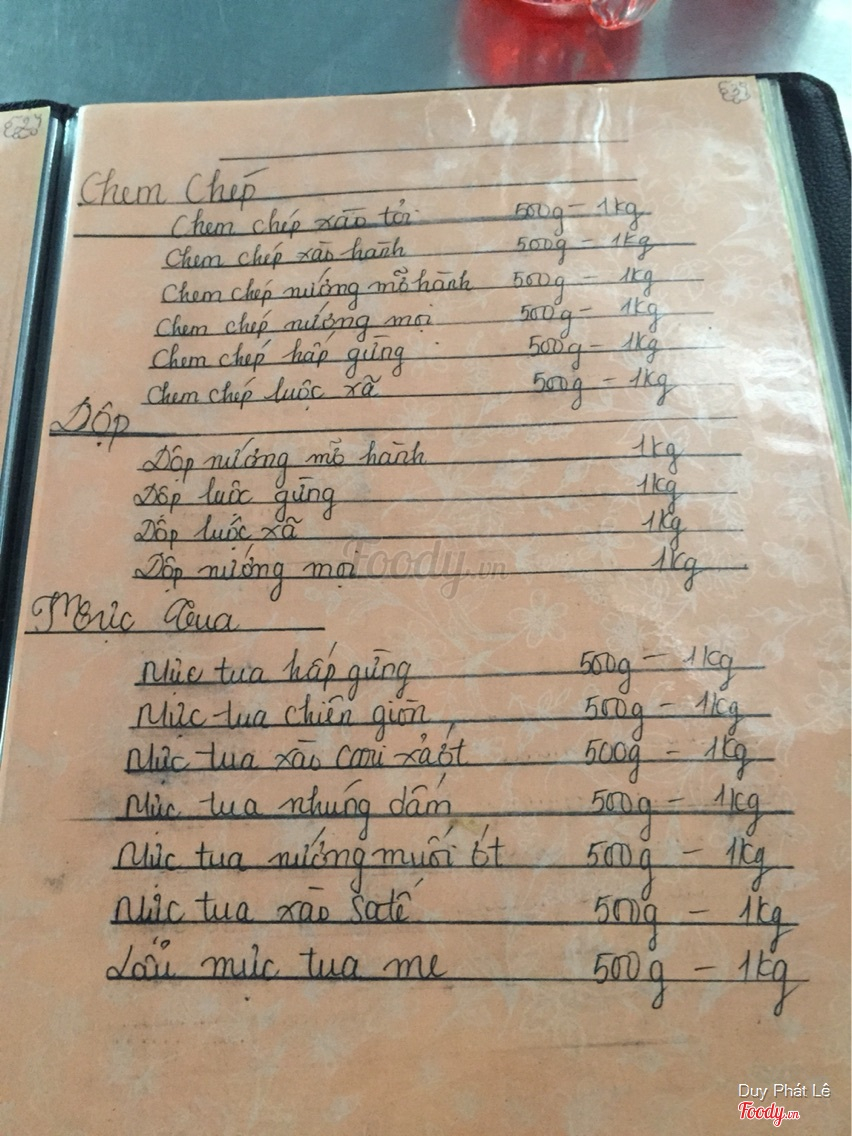 Chem Chép
Chem chép xào tỏi 500g - 1kg
Chem chép xào hành 500g - 1kg
Chem chép nướng mỡ hành 500g - 1kg
Chem chép nướng mọi 500g - 1kg
Chem chép hấp gừng 500g - 1kg
Chem chép luộc xã 500g - 1kg
Dộp
Dộp nướng mỡ hành 1kg
Dộp luộc gừng 1kg
Dộp luộc xã 1kg
Dộp nướng mọi 1kg
Foody.vn
Mực Tua
Mực tua hấp gừng 500g - 1kg
Mực tua chiên giòn 500g - 1kg
Mực tua xào cari xả ớt 500g - 1kg
Mực tua nhúng dấm 500g - 1kg
Mực tua nướng muối ớt 500g - 1kg
Mực tua xào Satế 500g - 1kg
Lẩu mực tua me 500g - 1kg
Duy Phát Lê
Foody.vn